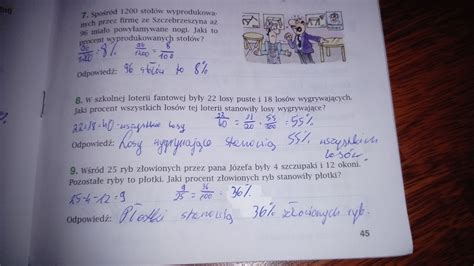 7. Spośród 1200 stołów wyprodukowa-
nych przez firmę ze Szczebrzeszyna aż
96 miało powyłamywane nogi. Jaki to
procent wyprodukowanych stołów?
8%
96/1200 = 8/100
Odpowiedź: 96 stołów to 8%
8. W szkolnej loterii fantowej były 22 losy puste i 18 losów wygrywających.
Jaki procent wszystkich losów tej loterii stanowiły losy wygrywające?
22+18=40-wszystkie losy 22/40 = 11/20 = 55/100 = 55%
Odpowiedź: Losy wygrywające stanowią 55% wszystkich
losów.
9. Wśród 25 ryb złowionych przez pana Józefa były 4 szczupaki i 12 okoni.
Pozostałe ryby to płotki. Jaki procent złowionych ryb stanowiły płotki?
25-4-12=9 9/25 = 36/100 = 36%
Odpowiedź: Płotki stanowią 36% złowionych ryb.
45